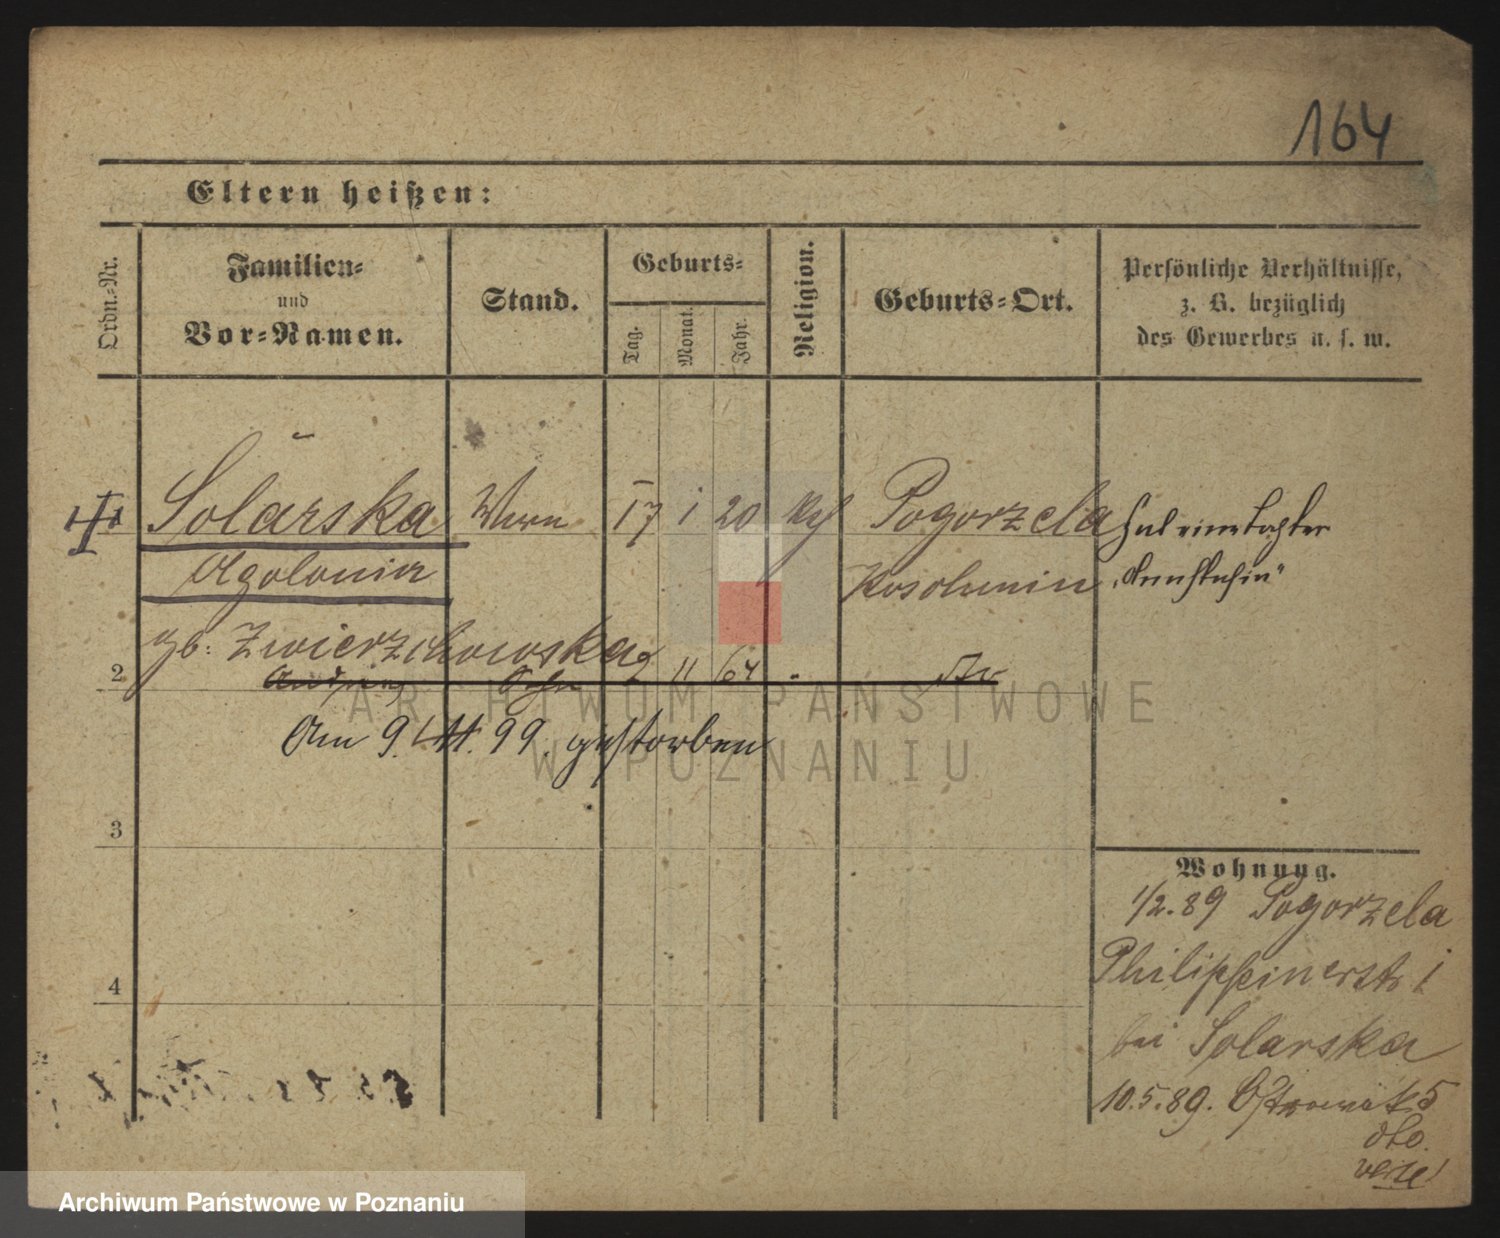 164
Eltern heißen:
Ordn.-Nr.
Familien-
und
Vor-Namen.
Stand.
Geburts-
Tag.
Monat.
Jahr.
Religion.
Geburts-Ort.
Persönliche Verhältnisse,
z. B. bezüglich
des Gewerbes u. s. w.
Solarska Wwe 17 1 20 Pogorzela Hat eine Tochter
Apolonia
gb. Zwierzchowska
2 11 64
Am 9. 99. gestorben
3
4
Wohnung.
1/2.89 Pogorzela
Philippinerstr 1
bei Solarska
10.5.89. Ostrowek 5
dto.
verte!
ARCHIWUM PAŃSTWOWE
W POZNANIU
Archiwum Państwowe w Poznaniu